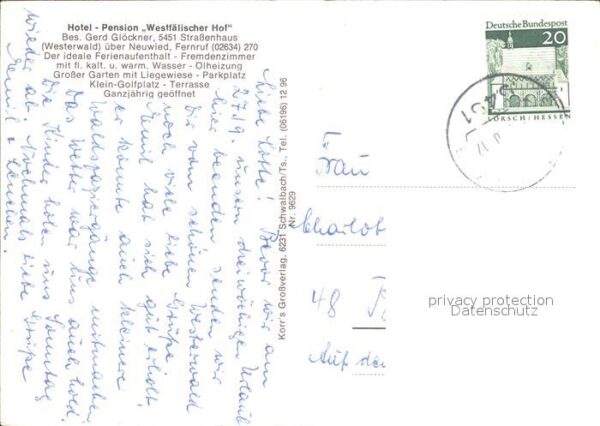 Hotel - Pension „Westfälischer Hof"
Bes. Gerd Glöckner, 5451 Straßenhaus
(Westerwald) über Neuwied, Fernruf (02634) 270
Der ideale Ferienaufenthalt - Fremdenzimmer
mit fl. kalt. u. warm. Wasser - Olheizung
Großer Garten mit Liegewiese - Parkplatz
Klein-Golfplatz - Terrasse
Ganzjährig geöffnet
Liebe Lotte! Bevor wir am
27.9. unsern dreiwöchigen Urlaub
hier beenden senden wir
Dir vom schönen Westerwald
noch viele liebe Grüße
Emil hat sich gut erholt,
er konnte auch kleinere
Waldspaziergänge mitmachen
Das Wetter war uns auch hold.
Die Kinder holen uns Sonntag
wieder ab. Nochmals liebe Grüße
Emil + Lenchen.
Korr's Großverlag, 6231 Schwalbach/Ts., Tel. (06196) 12 96
Nr. 9629
Deutsche Bundespost
20
LORSCH/HESSEN
5451
Frau
Charlot
48
Auf der
privacy protection
Datenschutz